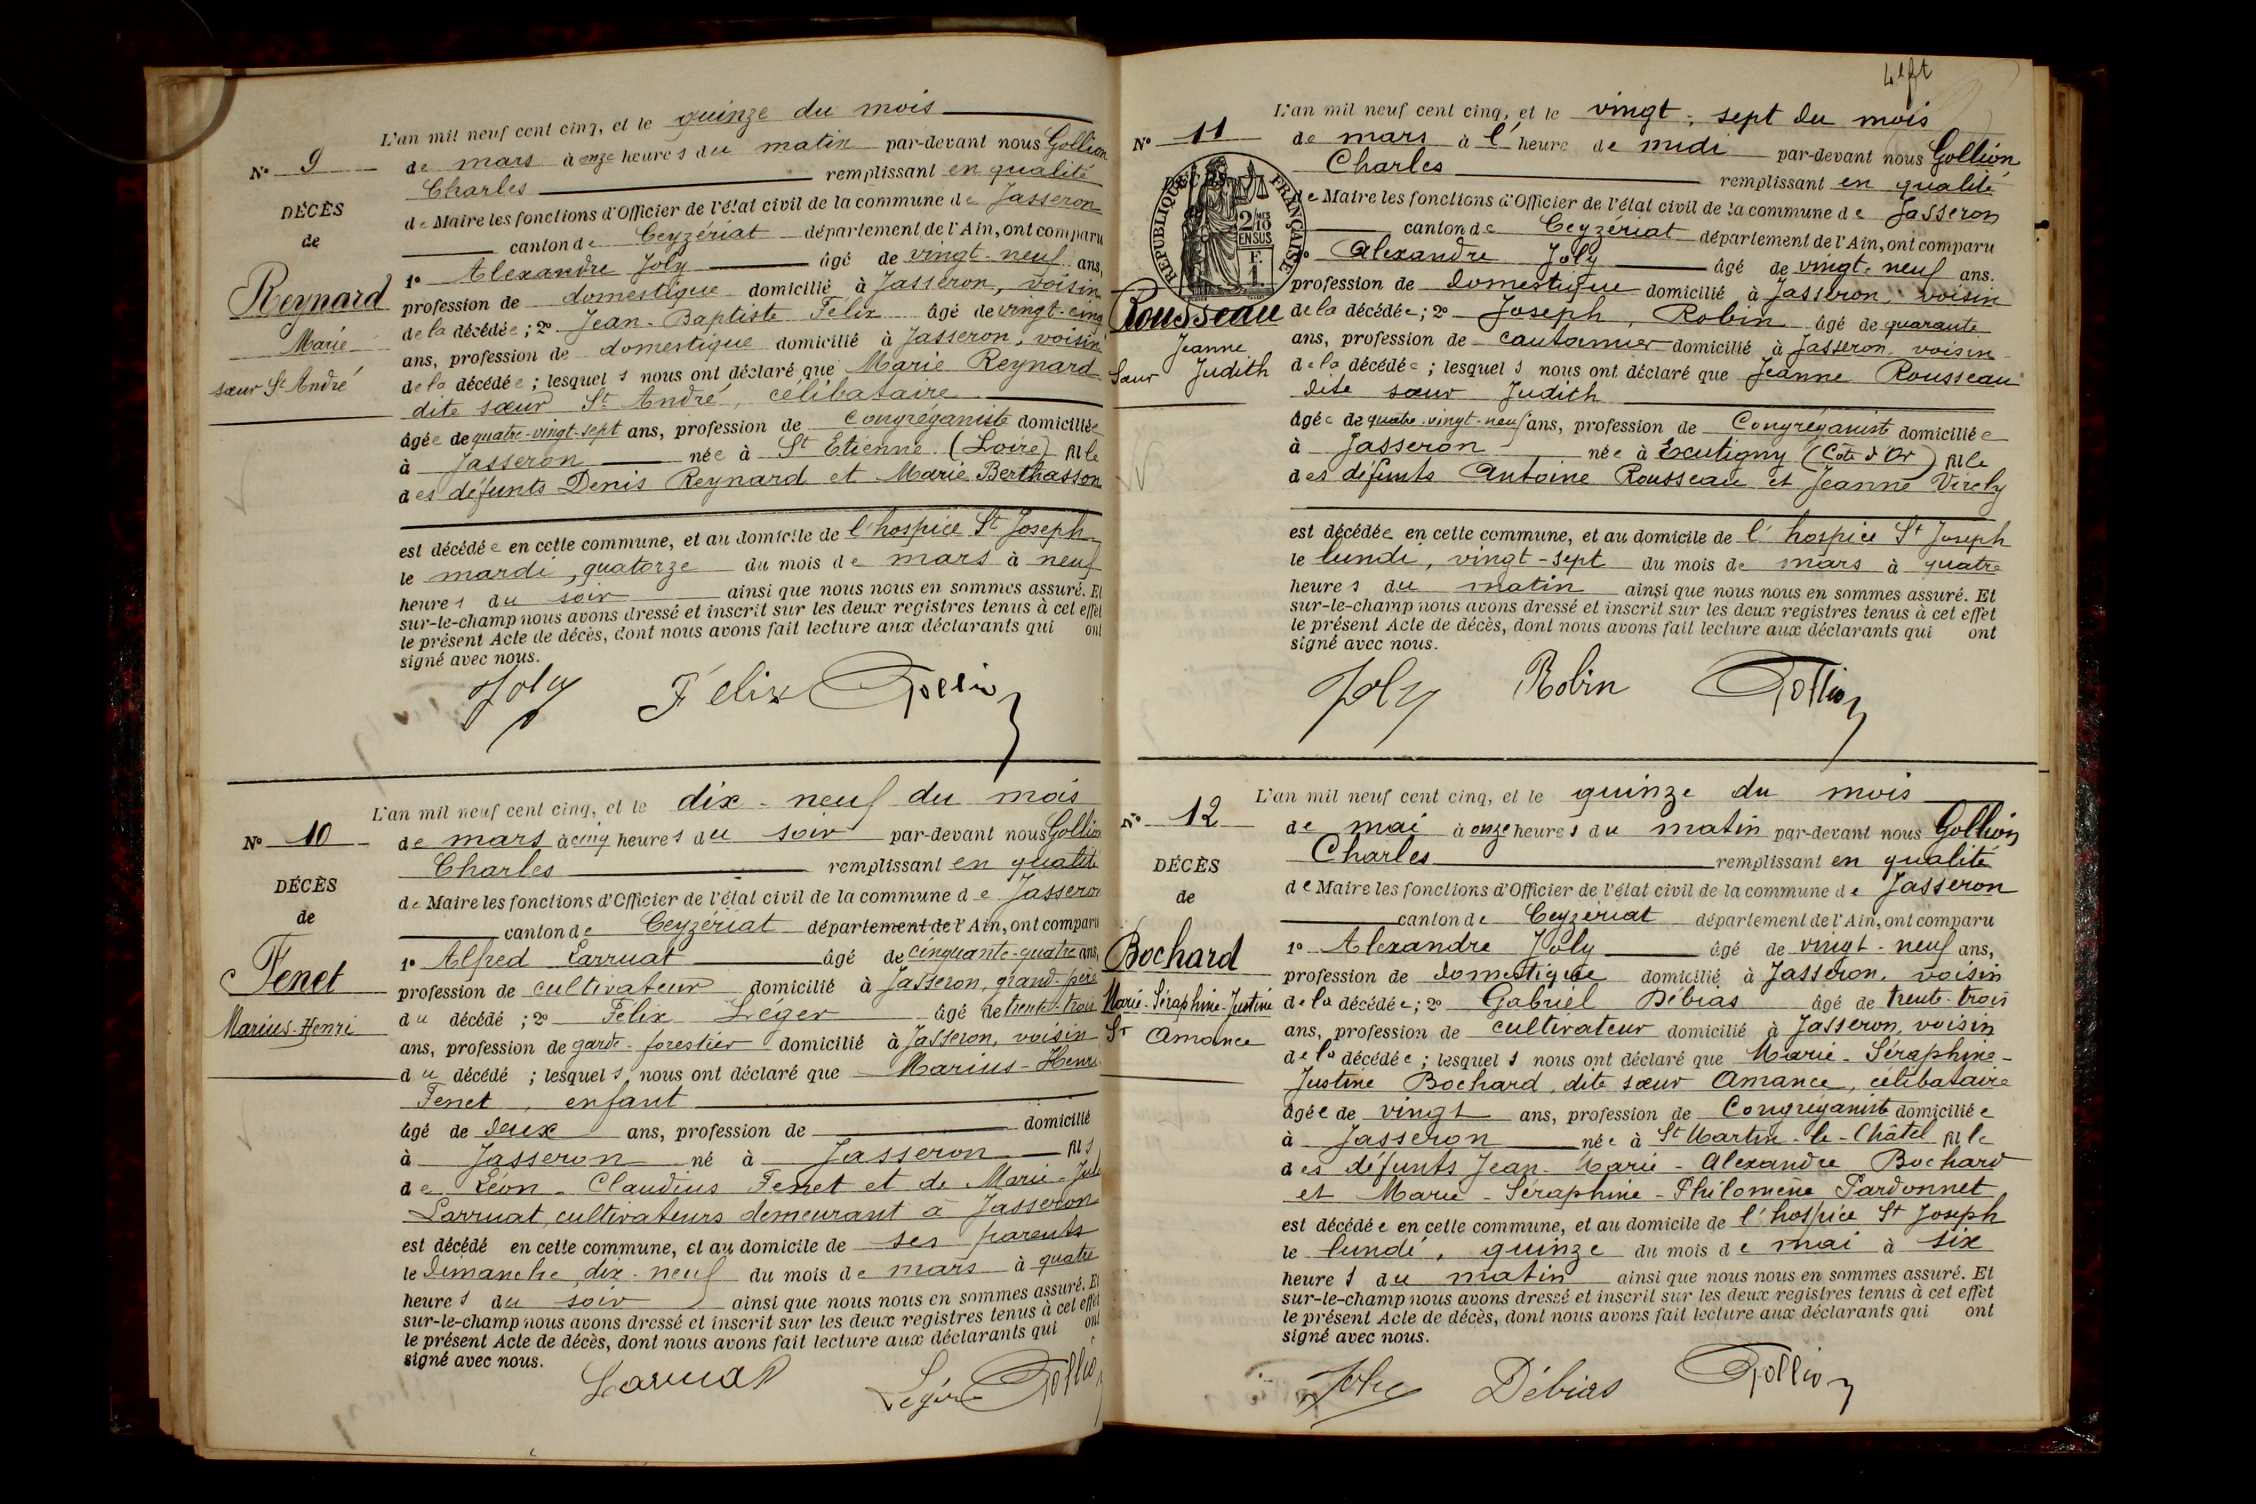 L'an mil neuf cent cinq, et le quinze du mois
N° 9
de mars à onze heures du matin par-devant nous Gollion
Charles remplissant en qualité
DÉCÈS
de Maire les fonctions d'Officier de l'état civil de la commune de Jasseron
de
canton de Ceyzériat département de l'Ain, ont comparu
1° Alexandre Joly âgé de vingt-neuf ans,
Reynard
profession de domestique domicilié à Jasseron, voisin
de la décédée; 2° Jean-Baptiste Félix âgé de vingt-cinq
Marie
ans, profession de domestique domicilié à Jasseron, voisin
sœur St André
de la décédée; lesquels nous ont déclaré que Marie Reynard
dite sœur St André, célibataire
âgée de quatre-vingt-sept ans, profession de Congréganiste domiciliée
à Jasseron née à St Etienne (Loire) fille
des défunts Denis Reynard et Marie Berthasson
est décédée en cette commune, et au domicile de l'hospice St Joseph
le mardi, quatorze du mois de mars à neuf
heures du soir ainsi que nous nous en sommes assuré. Et
sur-le-champ nous avons dressé et inscrit sur les deux registres tenus à cet effet
le présent Acte de décès, dont nous avons fait lecture aux déclarants qui ont
signé avec nous.
Joly Félix Gollion
L'an mil neuf cent cinq, et le dix-neuf du mois
N° 10
de mars à cinq heures du soir par-devant nous Gollion
Charles remplissant en qualité
DÉCÈS
de Maire les fonctions d'Officier de l'état civil de la commune de Jasseron
de
canton de Ceyzériat département de l'Ain, ont comparu
1° Alfred Larruat âgé de cinquante-quatre ans,
Fenet
profession de cultivateur domicilié à Jasseron, grand-père
du décédé; 2° Félix Léger âgé de trente-trois
Marius-Henri
ans, profession de garde-forestier domicilié à Jasseron, voisin
du décédé; lesquels nous ont déclaré que Marius-Henri
Fenet, enfant
âgé de deux ans, profession de domicilié
à Jasseron né à Jasseron fils
de Léon-Claudius Fenet et de Marie-Jule
Larruat, cultivateurs demeurant à Jasseron
est décédé en cette commune, et au domicile de ses parents
le dimanche, dix-neuf du mois de mars à quatre
heures du soir ainsi que nous nous en sommes assuré. Et
sur-le-champ nous avons dressé et inscrit sur les deux registres tenus à cet effet
le présent Acte de décès, dont nous avons fait lecture aux déclarants qui ont
signé avec nous.
Larruat Léger Gollion
L'an mil neuf cent cinq, et le vingt-sept du mois
N° 11
de mars à l'heure de midi par-devant nous Gollion
Charles remplissant en qualité
RÉPUBLIQUE FRANÇAISE
2/10 EN SUS
F. 1.
de Maire les fonctions d'Officier de l'état civil de la commune de Jasseron
canton de Ceyzériat département de l'Ain, ont comparu
1° Alexandre Joly âgé de vingt-neuf ans.
profession de domestique domicilié à Jasseron, voisin
Rousseau
de la décédée; 2° Joseph, Robin âgé de quarante
Jeanne
ans, profession de cantonnier domicilié à Jasseron, voisin
Sœur Judith
de la décédée; lesquels nous ont déclaré que Jeanne Rousseau
dite sœur Judith
âgée de quatre-vingt-neuf ans, profession de Congréganiste domiciliée
à Jasseron née à Ecutigny (Côte d'Or) fille
des défunts Antoine Rousseau et Jeanne Virely
est décédée en cette commune, et au domicile de l'hospice St Joseph
le lundi, vingt-sept du mois de mars à quatre
heures du matin ainsi que nous nous en sommes assuré. Et
sur-le-champ nous avons dressé et inscrit sur les deux registres tenus à cet effet
le présent Acte de décès, dont nous avons fait lecture aux déclarants qui ont
signé avec nous.
Joly Robin Gollion
L'an mil neuf cent cinq, et le quinze du mois
N° 12
de mai à onze heures du matin par-devant nous Gollion
Charles remplissant en qualité
DÉCÈS
de Maire les fonctions d'Officier de l'état civil de la commune de Jasseron
de
canton de Ceyzériat département de l'Ain, ont comparu
Bochard
1° Alexandre Joly âgé de vingt-neuf ans,
profession de domestique domicilié à Jasseron, voisin
Marie-Séraphine-Justine
de la décédée; 2° Gabriel Débias âgé de trente-trois
Sr Amance
ans, profession de cultivateur domicilié à Jasseron, voisin
de la décédée; lesquels nous ont déclaré que Marie-Séraphine-
Justine Bochard, dite sœur Amance, célibataire
âgée de vingt ans, profession de Congréganiste domiciliée
à Jasseron née à St Martin-le-Châtel fille
des défunts Jean-Marie-Alexandre Bochard
et Marie-Séraphine-Philomène Pardonnet
est décédée en cette commune, et au domicile de l'hospice St Joseph
le lundi, quinze du mois de mai à six
heures du matin ainsi que nous nous en sommes assuré. Et
sur-le-champ nous avons dressé et inscrit sur les deux registres tenus à cet effet
le présent Acte de décès, dont nous avons fait lecture aux déclarants qui ont
signé avec nous.
Joly Débias Gollion